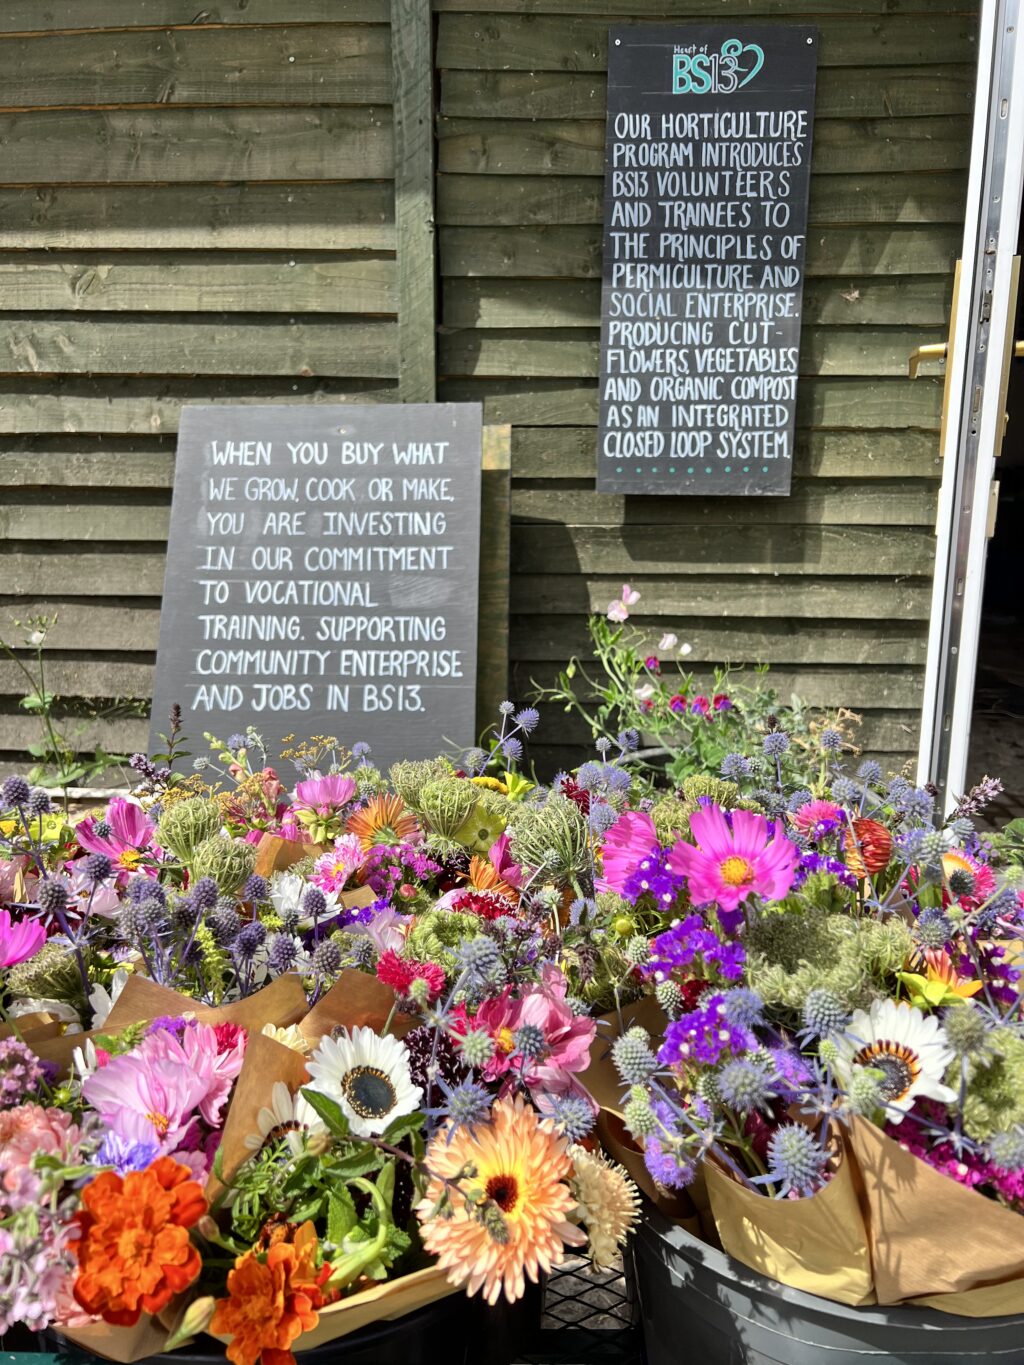 Heart of
BS13
OUR HORTICULTURE
PROGRAM INTRODUCES
BS13 VOLUNTEERS
AND TRAINEES TO
THE PRINCIPLES OF
PERMICULTURE AND
SOCIAL ENTERPRISE.
PRODUCING CUT-
FLOWERS, VEGETABLES
AND ORGANIC COMPOST
AS AN INTEGRATED
CLOSED LOOP SYSTEM.
WHEN YOU BUY WHAT
WE GROW, COOK OR MAKE,
YOU ARE INVESTING
IN OUR COMMITMENT
TO VOCATIONAL
TRAINING. SUPPORTING
COMMUNITY ENTERPRISE
AND JOBS IN BS13.